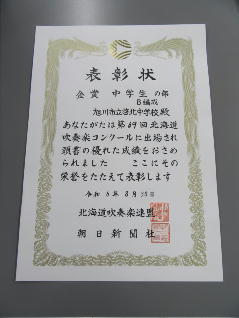 表彰状
金賞 中学生 の部
B編成
旭川市立啓北中学校 殿
あなたがたは第69回北海道
吹奏楽コンクールに出場され
頭書の優れた成績をおさめ
られました ここにその
栄誉をたたえて表彰します
令和 8月
北海道吹奏楽連盟
朝日新聞社